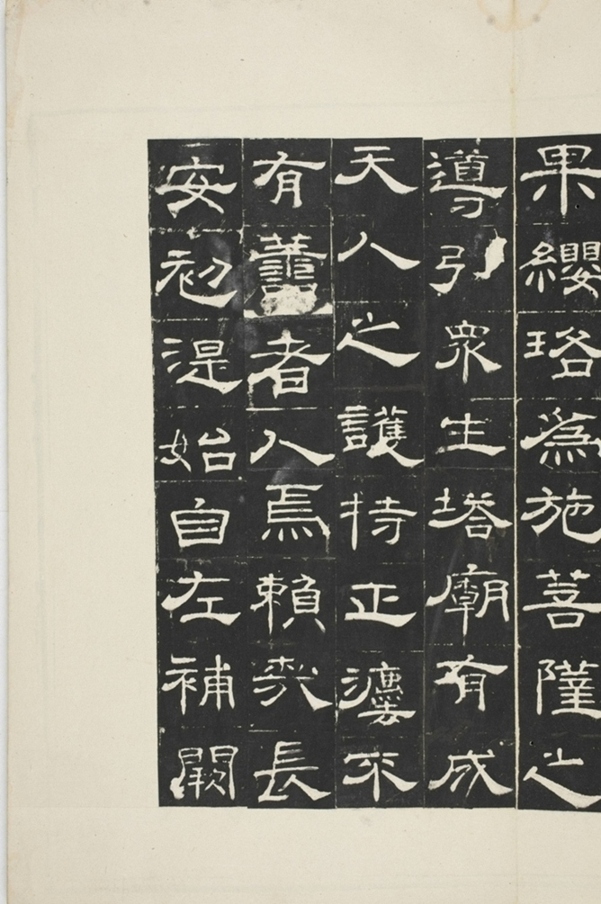 果纓珞為施菩薩之
導引眾生塔廟有成
天人之護持正灋來
有者人焉賴哉長
安初湜始自左補闕